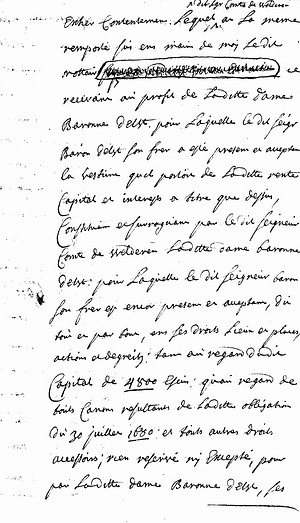 dit sgr Comte de Welderen
Entier Contentement. Lequel at La mesme
remporté sus en main de moy Ledit
nottair ce
recevant au profit de Laditte dame
Baronne d'elst. pour Laquelle le dit seigr
Baron d'elst son frer a esté present et acceptant
la Cession quel portoit de Laditte rente
Capital et interests a titre que dessus,
Constituant et surrogeant par le dit seigneur
Comte de Welderen Laditte dame baronne
d'elst: pour Laquelle le dit seigneur baron
son frer est encor present et aceptant, du
tout et par tout, ens ses droits Lieu et places,
actions et degreits: tant au regard dudit
Capital de 4800 Escus: qu'au regard de
touts Canons resultants de Laditte obligation
du 30 juillet 1680: et touts autres droits
accessoirs; rien reservé ny Excepté, pour
par Laditte dame Baronne d'elst, ses